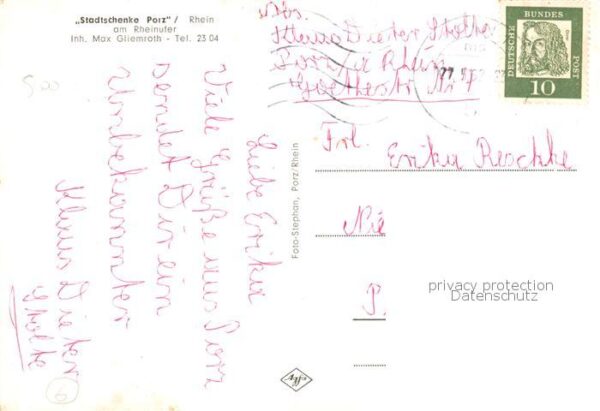 „Stadtschenke Porz" / Rhein
am Rheinufer
Inh. Max Gliemroth - Tel. 23 04
Abs.
Klaus Dieter Stolte
Porz/a Rhein
Goethestr Nr 7
DEUTSCHE BUNDESPOST
Dürer
10
Frl.
Erika Reschke
P.
Foto-Stephan, Porz/Rhein
Liebe Erika
Viele Grüße aus Porz
sendet Dir ein
Unbekannter
Klaus Dieter
Stolte
Agfa
privacy protection
Datenschutz
500
6